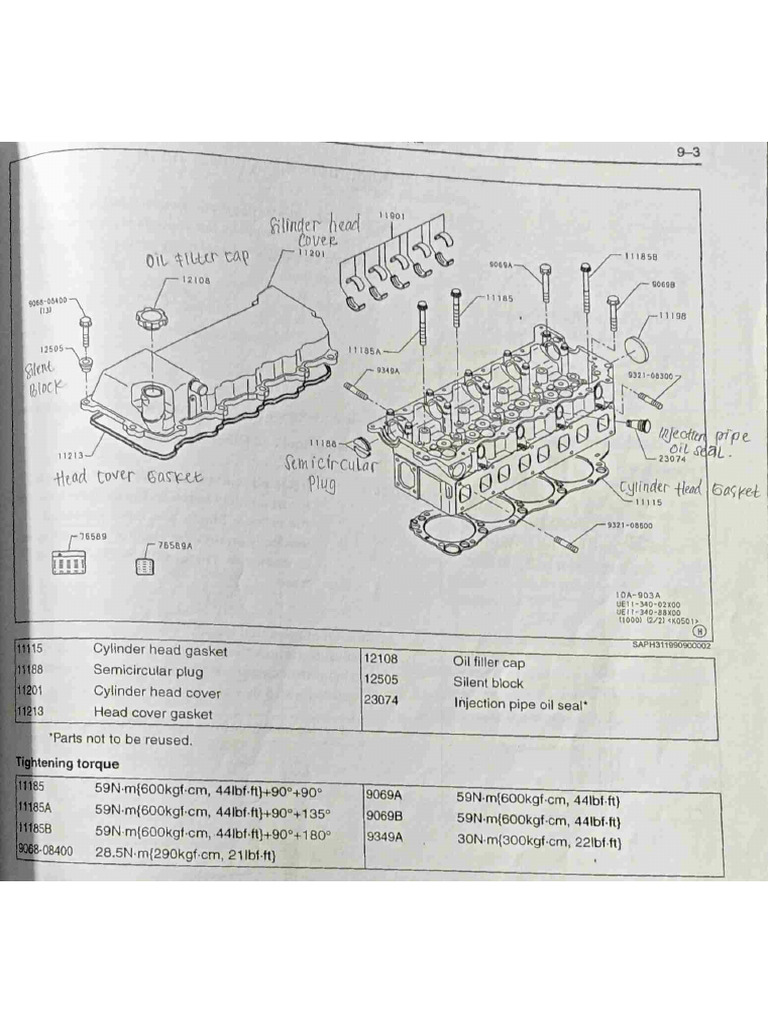 9–3
11901
Silinder head
cover
11201
Oil filter cap
12108
9068-08400
(13)
12505
Silent
Block
11213
Head cover Gasket
9069A
11185B
9069B
11185
11198
11185A
9349A
9321-08300
11188
Semicircular
Plug
Injection pipe
oil seal.
23074
Cylinder Head Gasket
11115
9321-08600
76589
76589A
10A-903A
UE11-340-02X00
UE11-340-88X00
(1000) (2/2) <K0501>
M
SAPH311990900002
11115 Cylinder head gasket
11188 Semicircular plug
11201 Cylinder head cover
11213 Head cover gasket
12108 Oil filler cap
12505 Silent block
23074 Injection pipe oil seal*
*Parts not to be reused.
Tightening torque
11185 59N·m{600kgf·cm, 44lbf·ft}+90°+90°
11185A 59N·m{600kgf·cm, 44lbf·ft}+90°+135°
11185B 59N·m{600kgf·cm, 44lbf·ft}+90°+180°
9068-08400 28.5N·m{290kgf·cm, 21lbf·ft}
9069A 59N·m{600kgf·cm, 44lbf·ft}
9069B 59N·m{600kgf·cm, 44lbf·ft}
9349A 30N·m{300kgf·cm, 22lbf·ft}